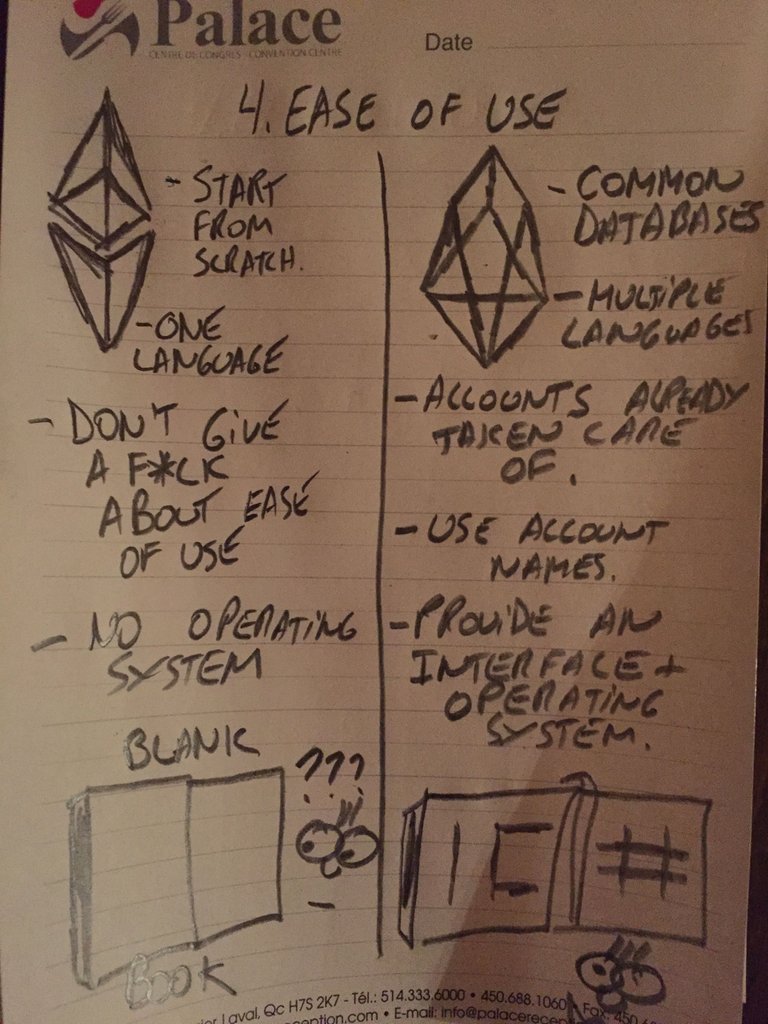 Palace
CENTRE DE CONGRÈS - CONVENTION CENTRE
Date
4. EASE OF USE
- START
FROM
SCRATCH.
- ONE
LANGUAGE
- DON'T GIVE
A F*CK
ABOUT EASE
OF USE
- NO OPERATING
SYSTEM
BLANK
???
BOOK
- COMMON
DATABASES
- MULTIPLE
LANGUAGES
- ACCOUNTS ALREADY
TAKEN CARE
OF.
- USE ACCOUNT
NAMES.
- PROVIDE AN
INTERFACE +
OPERATING
SYSTEM.
Laval, Qc H7S 2K7 - Tél.: 514.333.6000 • 450.688.1060 • Fax: 450
• E-mail: info@palacerecep